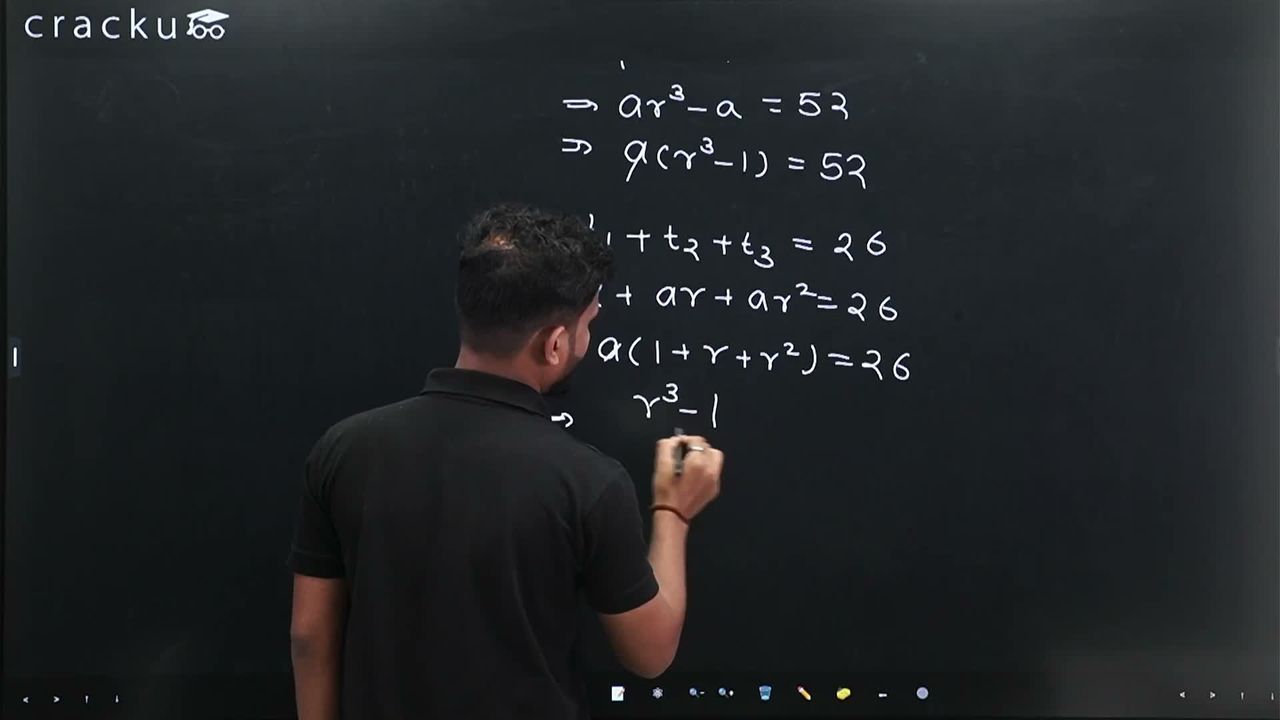 cracku
⇒ ar³ - a = 52
⇒ a(r³ - 1) = 52
+ t₂ + t₃ = 26
+ ar + ar² = 26
a(1 + r + r²) = 26
⇒ r³ - 1